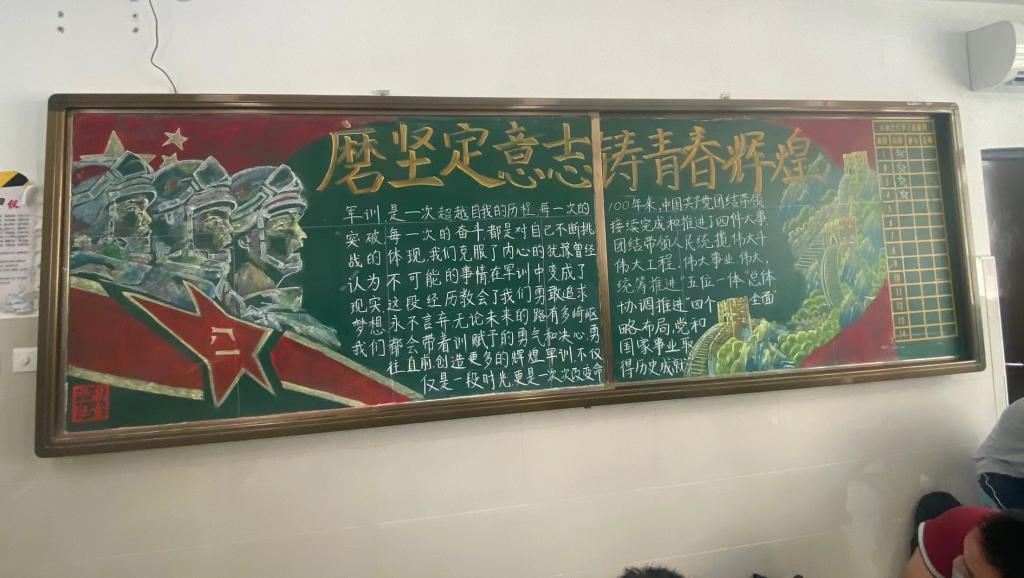 磨坚定意志铸青春辉煌
军训是一次超越自我的历程,每一次的
突破每一次的奋斗都是对自己不断挑
战的体现,我们克服了内心的犹豫曾经
认为不可能的事情在军训中变成了
现实这段经历教会了我们勇敢追求
梦想,永不言弃无论未来的路有多崎岖
我们都会带着训赋予的勇气和决心,勇
往直前创造更多的辉煌军训不仅
仅是一段时光,更是一次次改变命
100年来,中国共产党团结带领
接续完成和推进了四件大事
团结带领人民统揽伟大斗
伟大工程 伟大事业 伟大、
统筹推进“五位一体”总体
协调推进“四个 全面
略布局,党和
国家事业取
得历史成就
八一